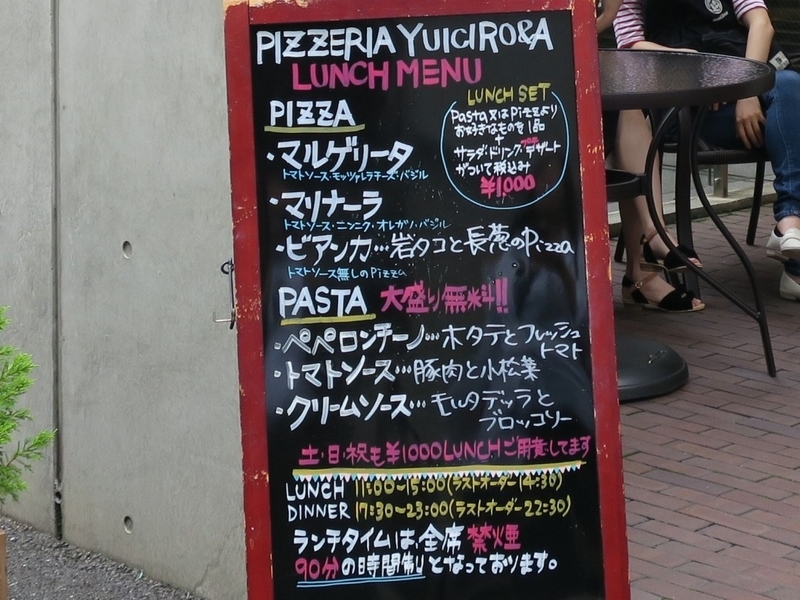 PIZZERIA YUICIRO&A
LUNCH MENU
LUNCH SET
Pasta又はPizzaより
お好きなものを1品
+
サラダ・ドリンク・デザート
がついて税込み
¥1000
PIZZA
・マルゲリータ
トマトソース・モッツァレラチーズ・バジル
・マリナーラ
トマトソース・ニンニク・オレガノ・バジル
・ビアンカ…岩タコと長葱のPizza
トマトソース無しのPizza
PASTA 大盛り無料!!
・ペペロンチーノ…ホタテとフレッシュ
トマト
・トマトソース…豚肉と小松菜
・クリームソース…モルタデッラと
ブロッコリー
土・日・祝も¥1000LUNCHご用意してます
LUNCH 11:00~15:00(ラストオーダー14:30)
DINNER 17:30~23:00(ラストオーダー22:30)
ランチタイムは全席禁煙
90分の時間制りとなっております。